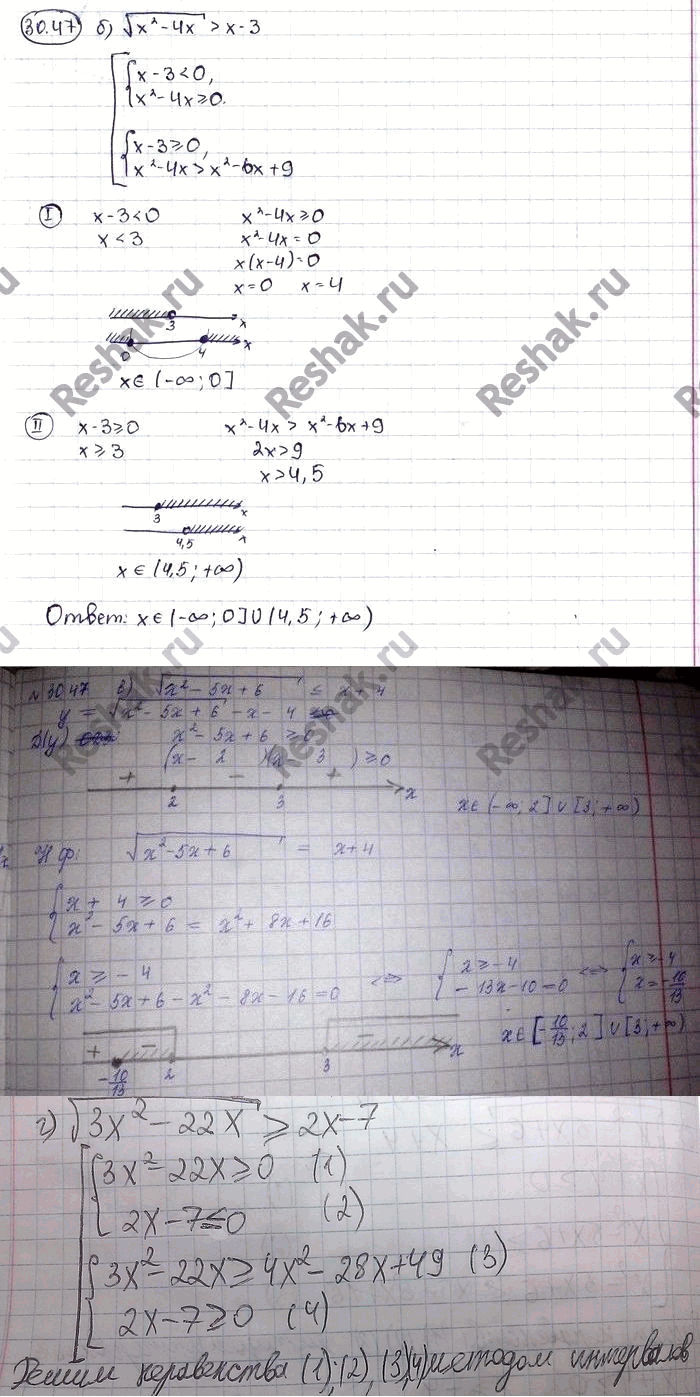 30.47 б) √x²-4x > x-3
[{x-3<0,
x²-4x≥0.
{x-3≥0,
x²-4x>x²-6x+9
I x-3<0 x²-4x≥0
x<3 x²-4x=0
x(x-4)=0
x=0 x=4
3 x
0 4 x
x∈(-∞;0]
II x-3≥0 x²-4x>x²-6x+9
x≥3 2x>9
x>4,5
3 x
4,5 x
x∈(4,5;+∞)
Ответ: x∈(-∞;0]∪(4,5;+∞)
Reshak.ru Reshak.ru Reshak.ru
Reshak.ru Reshak.ru Reshak.ru
№30.47 в) √x²-5x+6 ≤ x+4
y = √x²-5x+6 -x-4
D(y) x²-5x+6≥0
(x-2)(x-3)≥0
+ - +
2 3 x
x∈(-∞;2]∪[3;+∞)
Н.ф: √x²-5x+6 = x+4
{x+4≥0
x²-5x+6 = x²+8x+16
{x≥-4
x²-5x+6-x²-8x-16=0 <=> {x≥-4
-13x-10=0 <=> {x≥-4
x=-10/13
+ - -
-10/13 2 3 x
x∈[-10/13;2]∪[3;+∞)
г) √3x²-22x ≥ 2x-7
[{3x²-22x≥0 (1)
2x-7≤0 (2)
{3x²-22x≥4x²-28x+49 (3)
2x-7≥0 (4)
Решим неравенства (1),(2),(3),(4) методом интервалов